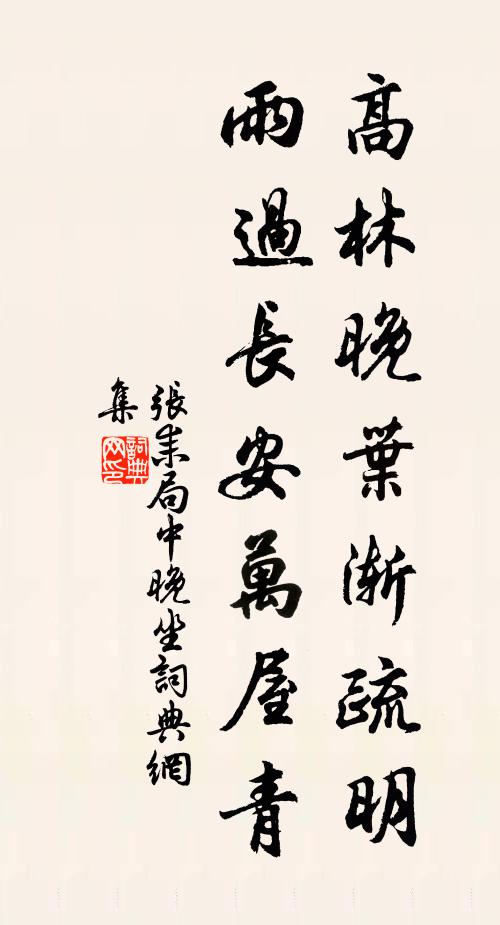 高林晚葉漸疏明
雨過長安萬屋青
張耒局中晚坐詞典網
集
詞典網印